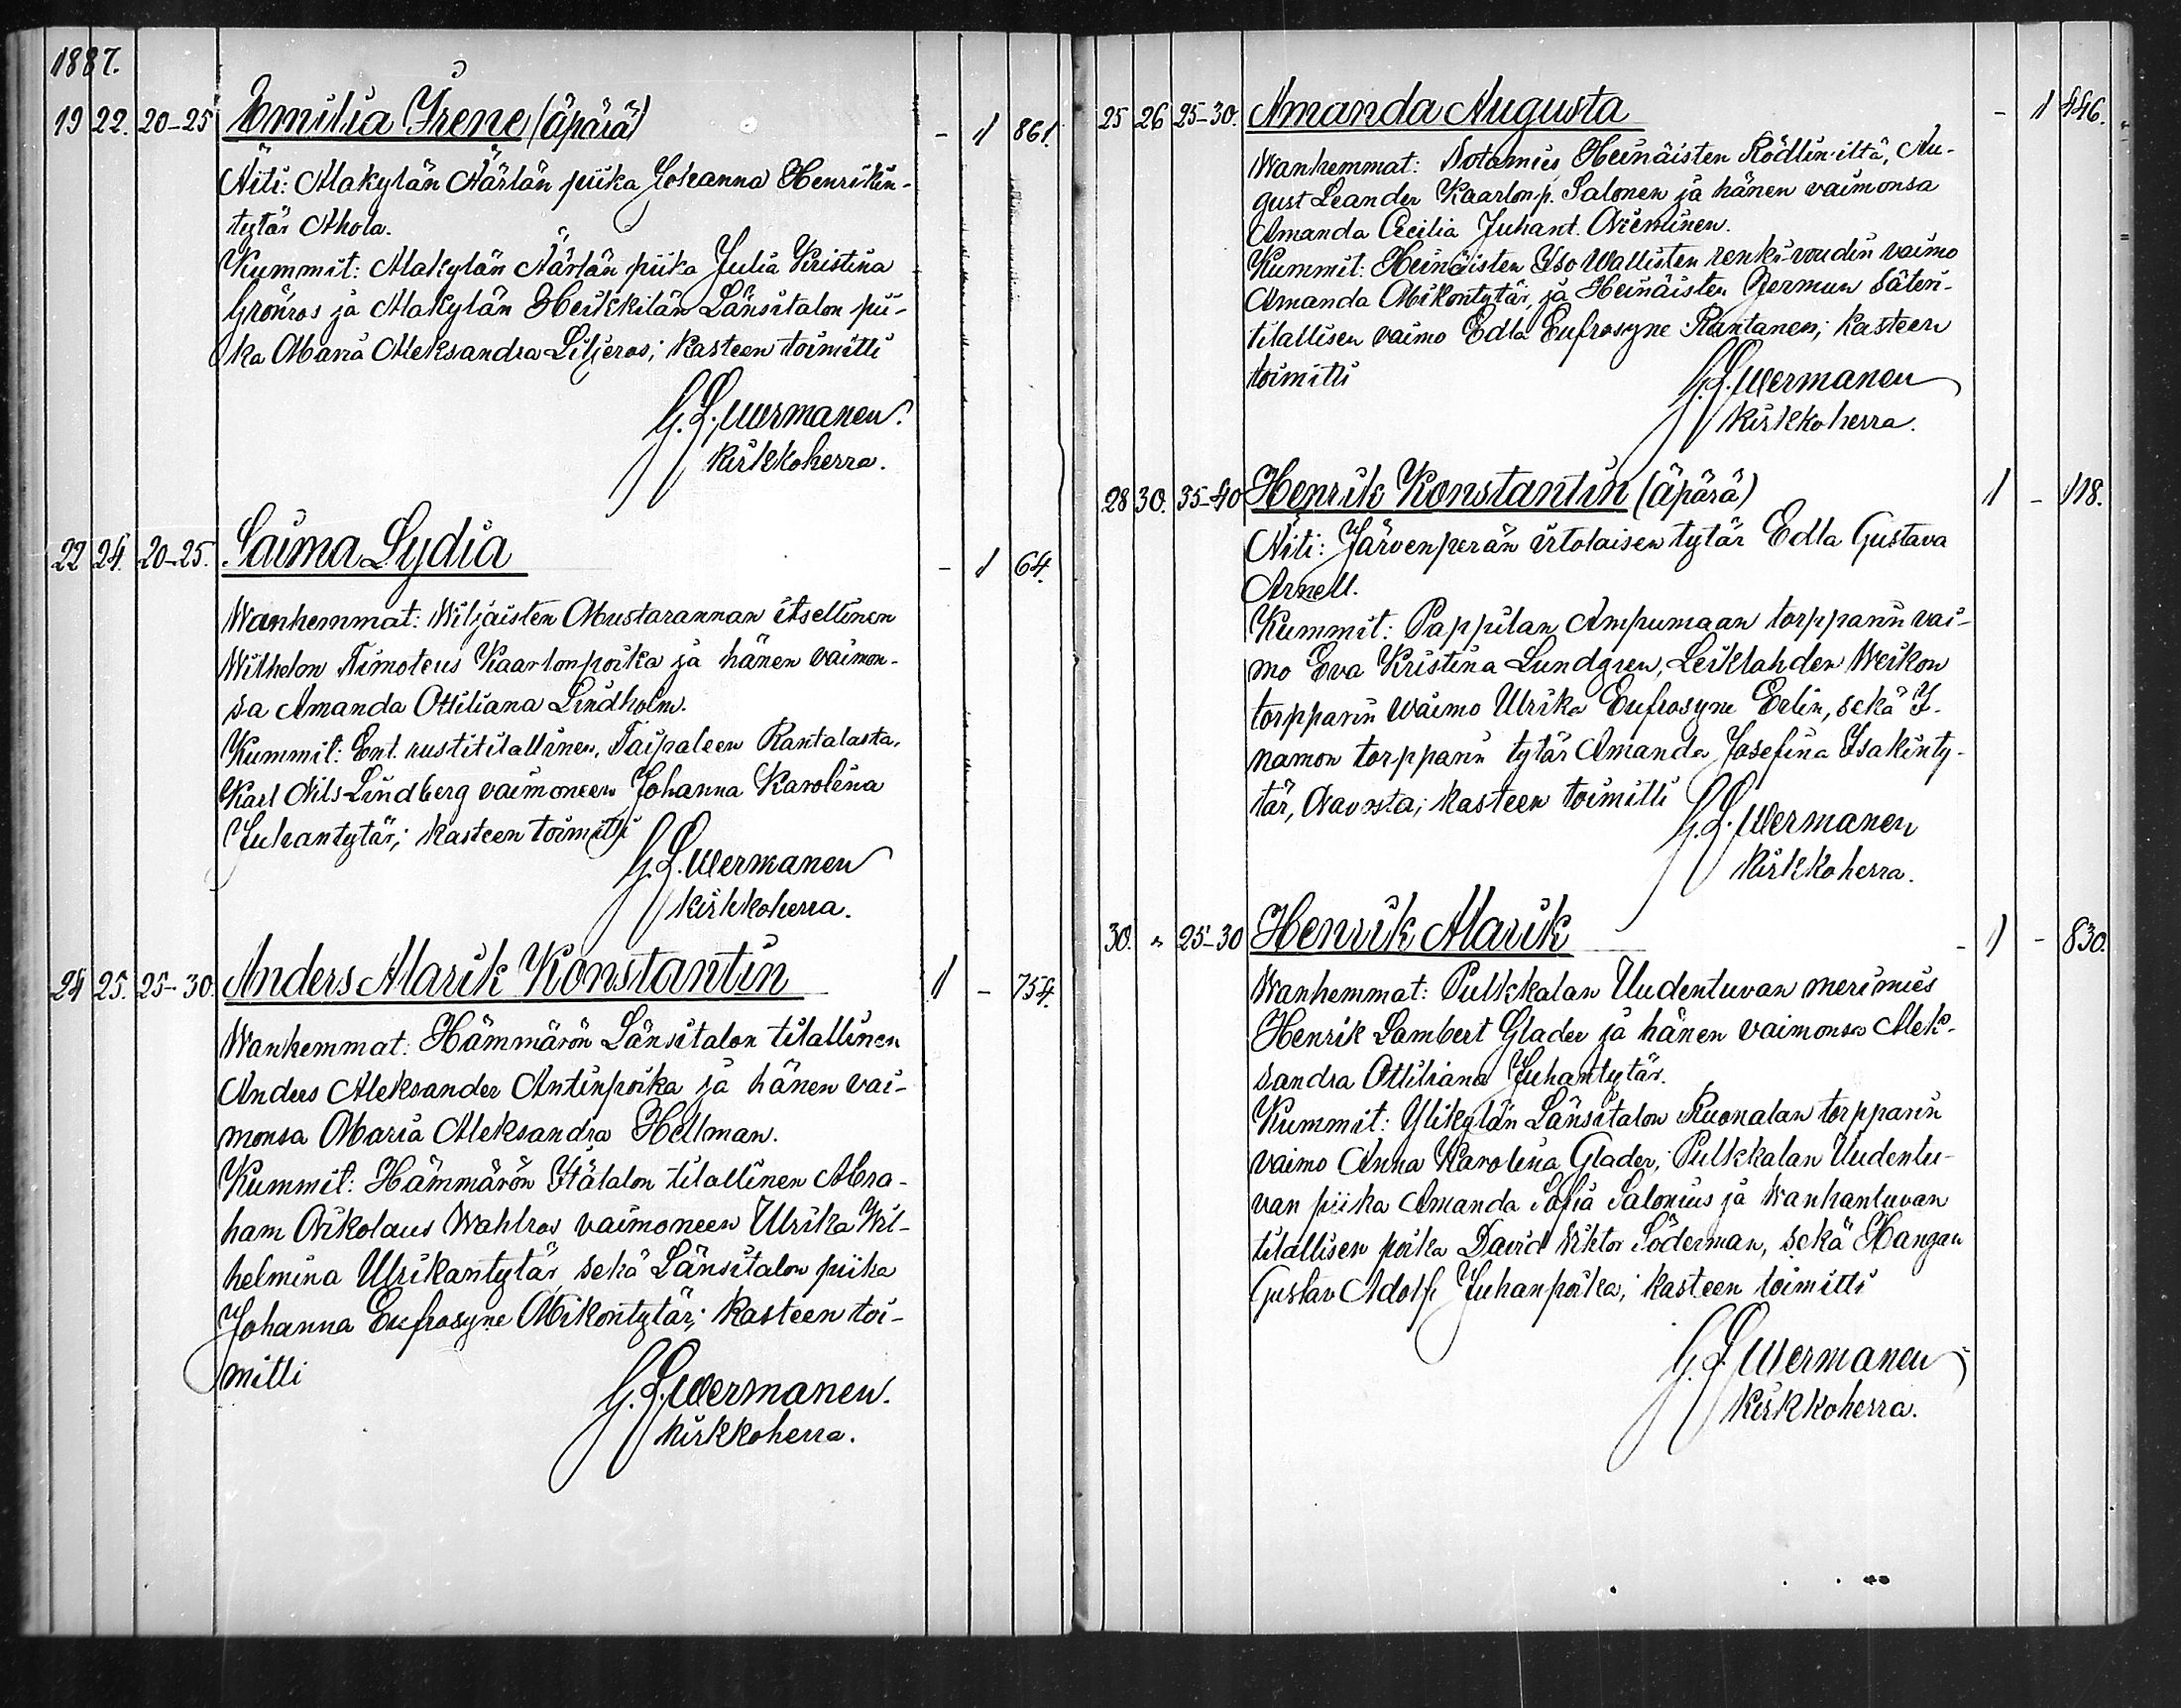 1887.
19 22. 20-25 Emilia Irene (äpärä) - 1 861.
Äiti: Alakylän Äärlän piika Johanna Henrikin-
tytär Ahola.
Kummit: Alakylän Äärlän piika Julia Kristina
Grönros ja Alakylän Heikkilän Länsitalon pii-
ka Maria Aleksandra Liljeros; kasteen toimitti
G. L. Wermanen.
Kirkkoherra.
22 24. 20-25. Saima Lydia - 1 64.
Wanhemmat: Wiljaisten Mustarannan itsellinen
Wilhelm Timoteus Kaarlonpoika ja hänen vaimon-
sa Amanda Ottiliana Lindholm.
Kummit: Ent. rustitilallinen, Taipaleen Rantalasta,
Karl Nils Lindberg vaimoneen Johanna Karolina
Juhantytär; kasteen toimitti
G. L. Wermanen
Kirkkoherra.
24 25. 25-30. Anders Alarik Konstantin 1 - 754.
Wanhemmat: Hämmärön Länsitalon tilallinen
Anders Aleksander Antinpoika ja hänen vai-
monsa Maria Aleksandra Hellman.
Kummit: Hämmärön Itätalon tilallinen Abra-
ham Nikolaus Wahlros vaimoneen Ulrika Wil-
helmina Ulrikantytär sekä Länsitalon piika
Johanna Eufrosyne Mikontytär; kasteen toi-
mitti
G. L. Wermanen.
Kirkkoherra.
25 26 25-30. Amanda Augusta - 1 446.
Wanhemmat: Sotamies Heinäisten Rödlin'iltä, Au-
gust Leander Kaarlonp. Salonen ja hänen vaimonsa
Amanda Cecilia Juhant. Nieminen.
Kummit: Heinäisten Iso Wallisten renki-voudin vaimo
Amanda Mikontytär ja Heinäisten Jermun säteri-
tilallisen vaimo Edla Eufrosyne Rantanen; kasteen
toimitti
G. L. Wermanen
Kirkkoherra.
28 30. 35-40 Henrik Konstantin (äpärä) 1 - 118.
Äiti: Järvenperän irtolaisen tytär Edla Gustava
Arnell.
Kummit: Pappilan Ampumaan torpparin vai-
mo Eva Kristina Lundgren, Leiklahden Weikon
torpparin vaimo Ulrika Eufrosyne Erlin, sekä I-
namon torpparin tytär Amanda Josefina Isakinty-
tär, Navosta; kasteen toimitti
G. L. Wermanen
Kirkkoherra.
30. " 25-30 Henrik Alarik - 1 - 830.
Wanhemmat: Pulkkalan Uudentuvan merimies
Henrik Lambert Glader ja hänen vaimonsa Alek-
sandra Ottiliana Juhantytär.
Kummit: Ylikylän Länsitalon Ruonalan torpparin
vaimo Anna Karolina Glader, Pulkkalan Uudentu-
van piika Amanda Sofia Salonius ja Wanhantuvan
tilallisen poika David Wiktor Söderman, sekä Hangan
Gustav Adolf Juhanpoika; kasteen toimitti
G. L. Wermanen
Kirkkoherra.